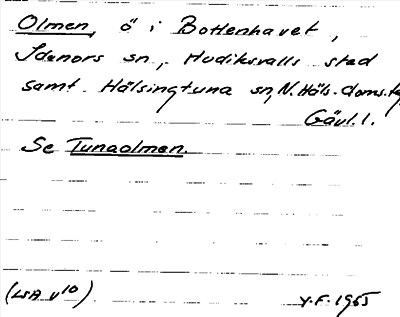 Olmen, ö i Bottenhavet,
Idenors sn, Hudiksvalls stad
samt Hälsingtuna sn, N. Häls. doms.
Gävl. l.
Se Tunaolmen.
(LSA v10) Y.F. 1965